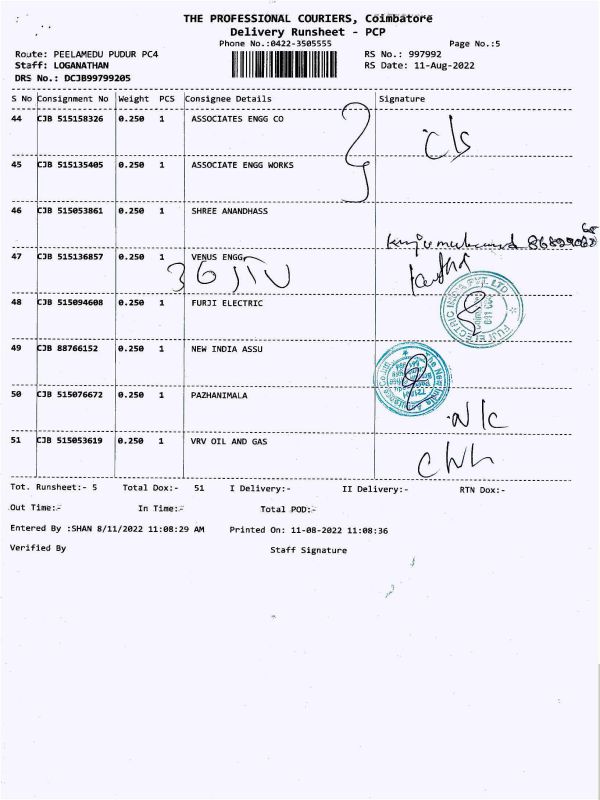 THE PROFESSIONAL COURIERS, Coimbatore
Delivery Runsheet - PCP
Phone No.:0422-3505555 Page No.:5
Route: PEELAMEDU PUDUR PC4 RS No.: 997992
Staff: LOGANATHAN RS Date: 11-Aug-2022
DRS No.: DCJB99799205
S No Consignment No Weight PCS Consignee Details Signature
44 CJB 515158326 0.250 1 ASSOCIATES ENGG CO
45 CJB 515135405 0.250 1 ASSOCIATE ENGG WORKS
46 CJB 515053861 0.250 1 SHREE ANANDHASS
47 CJB 515136857 0.250 1 VENUS ENGG
48 CJB 515094608 0.250 1 FURJI ELECTRIC
49 CJB 88766152 0.250 1 NEW INDIA ASSU
50 CJB 515076672 0.250 1 PAZHANIMALA
N/C
51 CJB 515053619 0.250 1 VRV OIL AND GAS
Tot. Runsheet:- 5 Total Dox:- 51 I Delivery:- II Delivery:- RTN Dox:-
Out Time:- In Time:- Total POD:-
Entered By :SHAN 8/11/2022 11:08:29 AM Printed On: 11-08-2022 11:08:36
Verified By Staff Signature